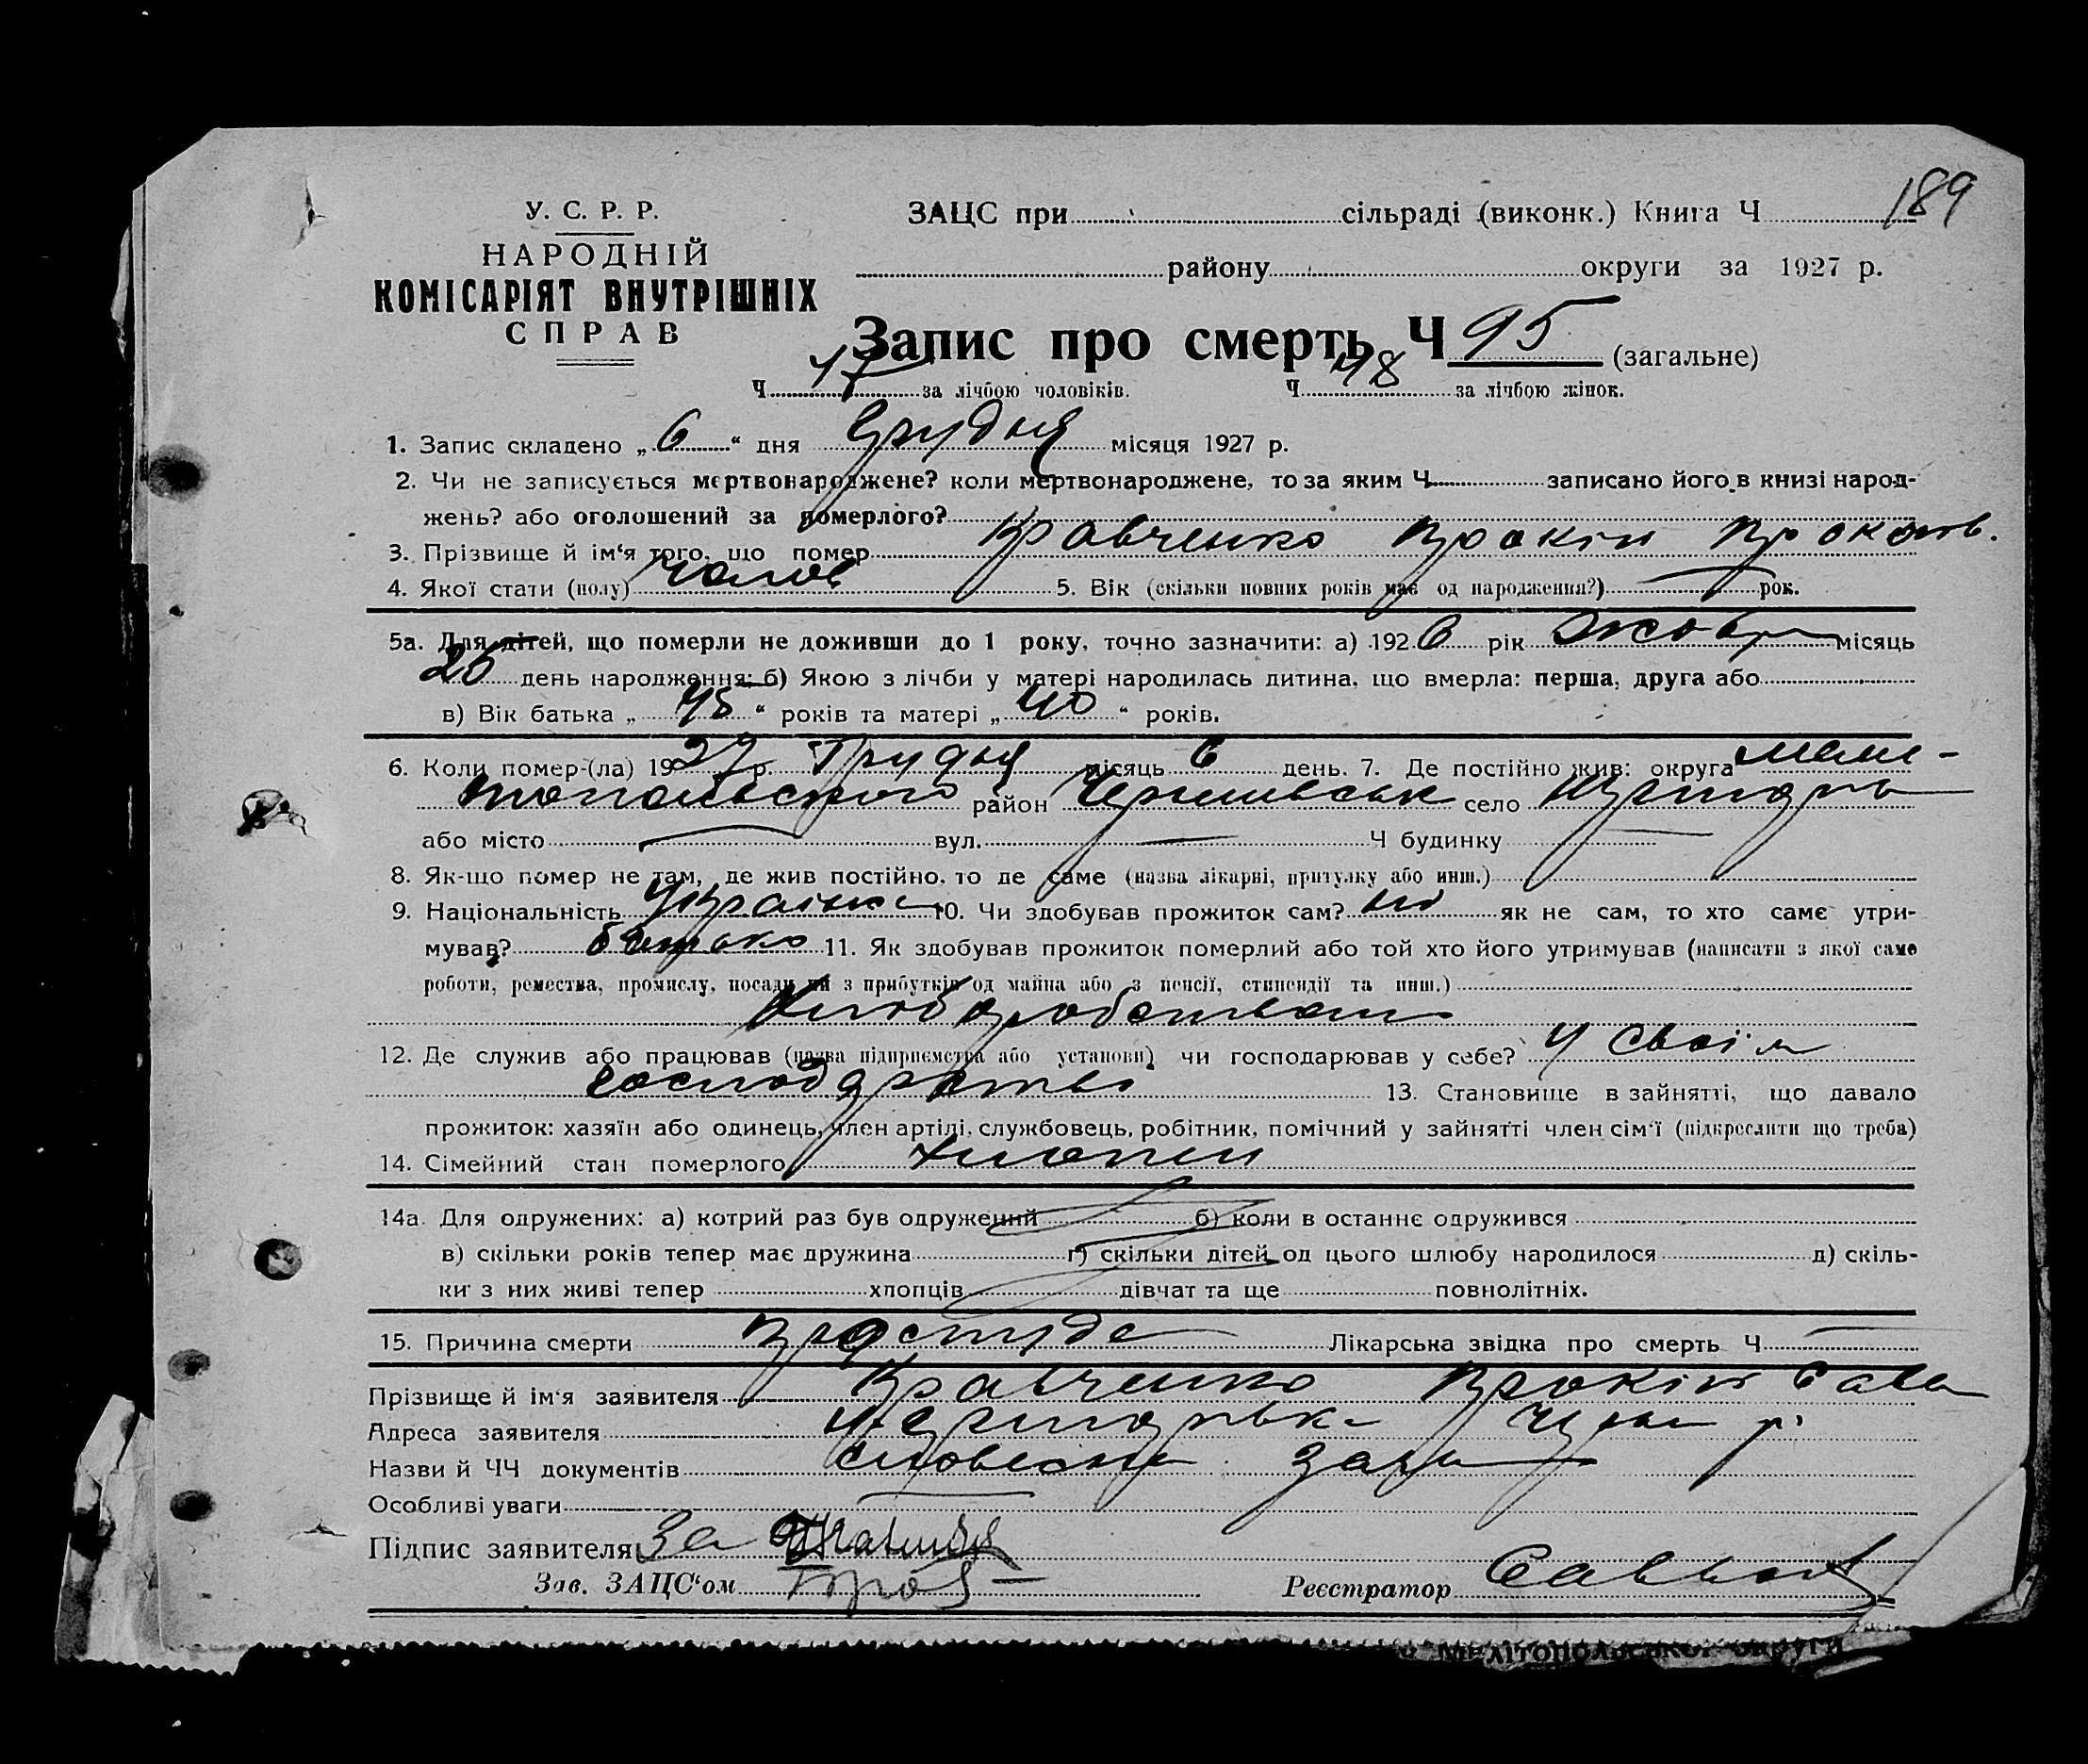 189
У. С. Р. Р.
НАРОДНІЙ
КОМІСАРІЯТ ВНУТРІШНІХ
СПРАВ
ЗАЦС при сільраді (виконк.) Книга Ч
району округи за 1927 р.
Запис про смерть Ч 95 (загальне)
Ч 47 за лічбою чоловіків. Ч 48 за лічбою жінок.
1. Запис складено „ 6 “ дня Грудня місяця 1927 р.
2. Чи не записується мертвонароджене? коли мертвонароджене, то за яким Ч записано його в книзі народ-
жень? або оголошений за померлого?
3. Прізвище й ім‘я того, що помер Кравченко Прокіп Прокопів.
4. Якої стати (полу) чолов 5. Вік (скільки повних років має од народження?) рок.
5а. Для дітей, що померли не доживши до 1 року, точно зазначити: а) 192 6 рік Жовтн місяць
25 день народження: б) Якою з лічби у матері народилась дитина, що вмерла: перша, друга або
в) Вік батька „ 45 “ років та матері „ 40 “ років.
6. Коли помер-(ла) 19 27 р. Грудня місяць 6 день. 7. Де постійно жив: округа Мелі-
топольського район Чернигівськ село
або місто вул. Ч будинку
8. Як-що помер не там, де жив постійно, то де саме (назва лікарні, притулку або инш.)
9. Національність 10. Чи здобував прожиток сам? ні як не сам, то хто саме утри-
мував? батько 11. Як здобував прожиток померлий або той хто його утримував (написати з якої саме
роботи, ремества, промислу, посади чи з прибутків од майна або з пенсії, стипендії та инш.)
Хліборобством
12. Де служив або працював (назва підприємства або установи) чи господарював у себе? У своїм
господарстві 13. Становище в зайнятті, що давало
прожиток: хазяїн або одинець, член артілі, службовець, робітник, помічний у зайнятті член сім‘ї (підкреслити що треба)
14. Сімейний стан померлого хлопец
14а. Для одружених: а) котрий раз був одружений б) коли в останнє одружився
в) скільки років тепер має дружина г) скільки дітей од цього шлюбу народилося д) скіль-
ки з них живі тепер хлопців дівчат та ще повнолітніх.
15. Причина смерти простуда Лікарська звідка про смерть Ч
Прізвище й ім‘я заявителя Кравченко Прокіп Сава
Адреса заявителя
Назви й ЧЧ документів словесна заява
Особливі уваги
Підпис заявителя За
Зав. ЗАЦС‘ом
Реєстратор
Мелітопольської округи